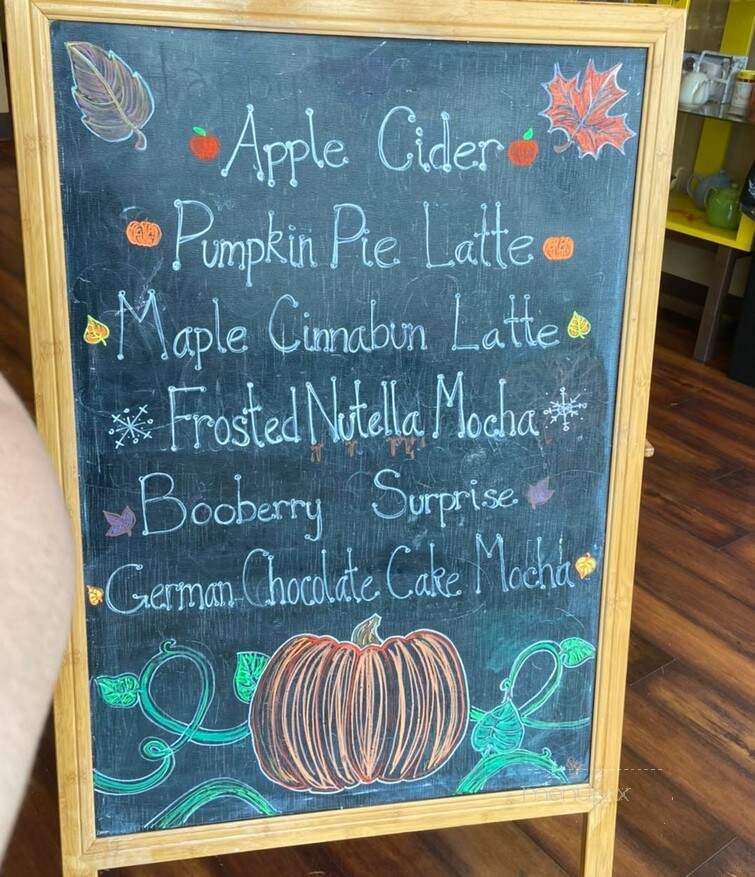 Apple Cider
Pumpkin Pie Latte
Maple Cinnabun Latte
Frosted Nutella Mocha
Booberry Surprise
German Chocolate Cake Mocha